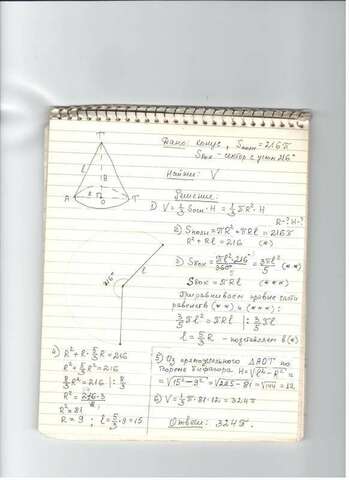 Дано: конус, Sполн = 216π
Sбок - сектор с углом 216°
Найти: V
Решение:
1) V = 1/3 Sосн·H = 1/3 πR²·H
R-? H-?
2) Sполн = πR² + πRl = 216π
R² + Rl = 216 (*)
3) Sбок = πl²·216°/360° = 3πl²/5 (**)
Sбок = πRl (***)
Приравниваем правые части
равенств (**) и (***):
3/5 πl² = πRl |: 3/5 πl
l = 5/3 R - подставляем в (*)
T
l
H
A
R
O
T
216°
l
4) R² + R·5/3 R = 216
R² + 5/3 R² = 216
8/3 R² = 216 |: 8/3
R² = 216·3/8
R² = 81
R = 9 ; l = 5/3·9 = 15
5) Из прямоугольного ΔAOT по
теореме Пифагора H = √(l² - R²) =
= √(15² - 9²) = √(225 - 81) = √144 = 12.
6) V = 1/3 π·81·12 = 324π
Ответ: 324π.